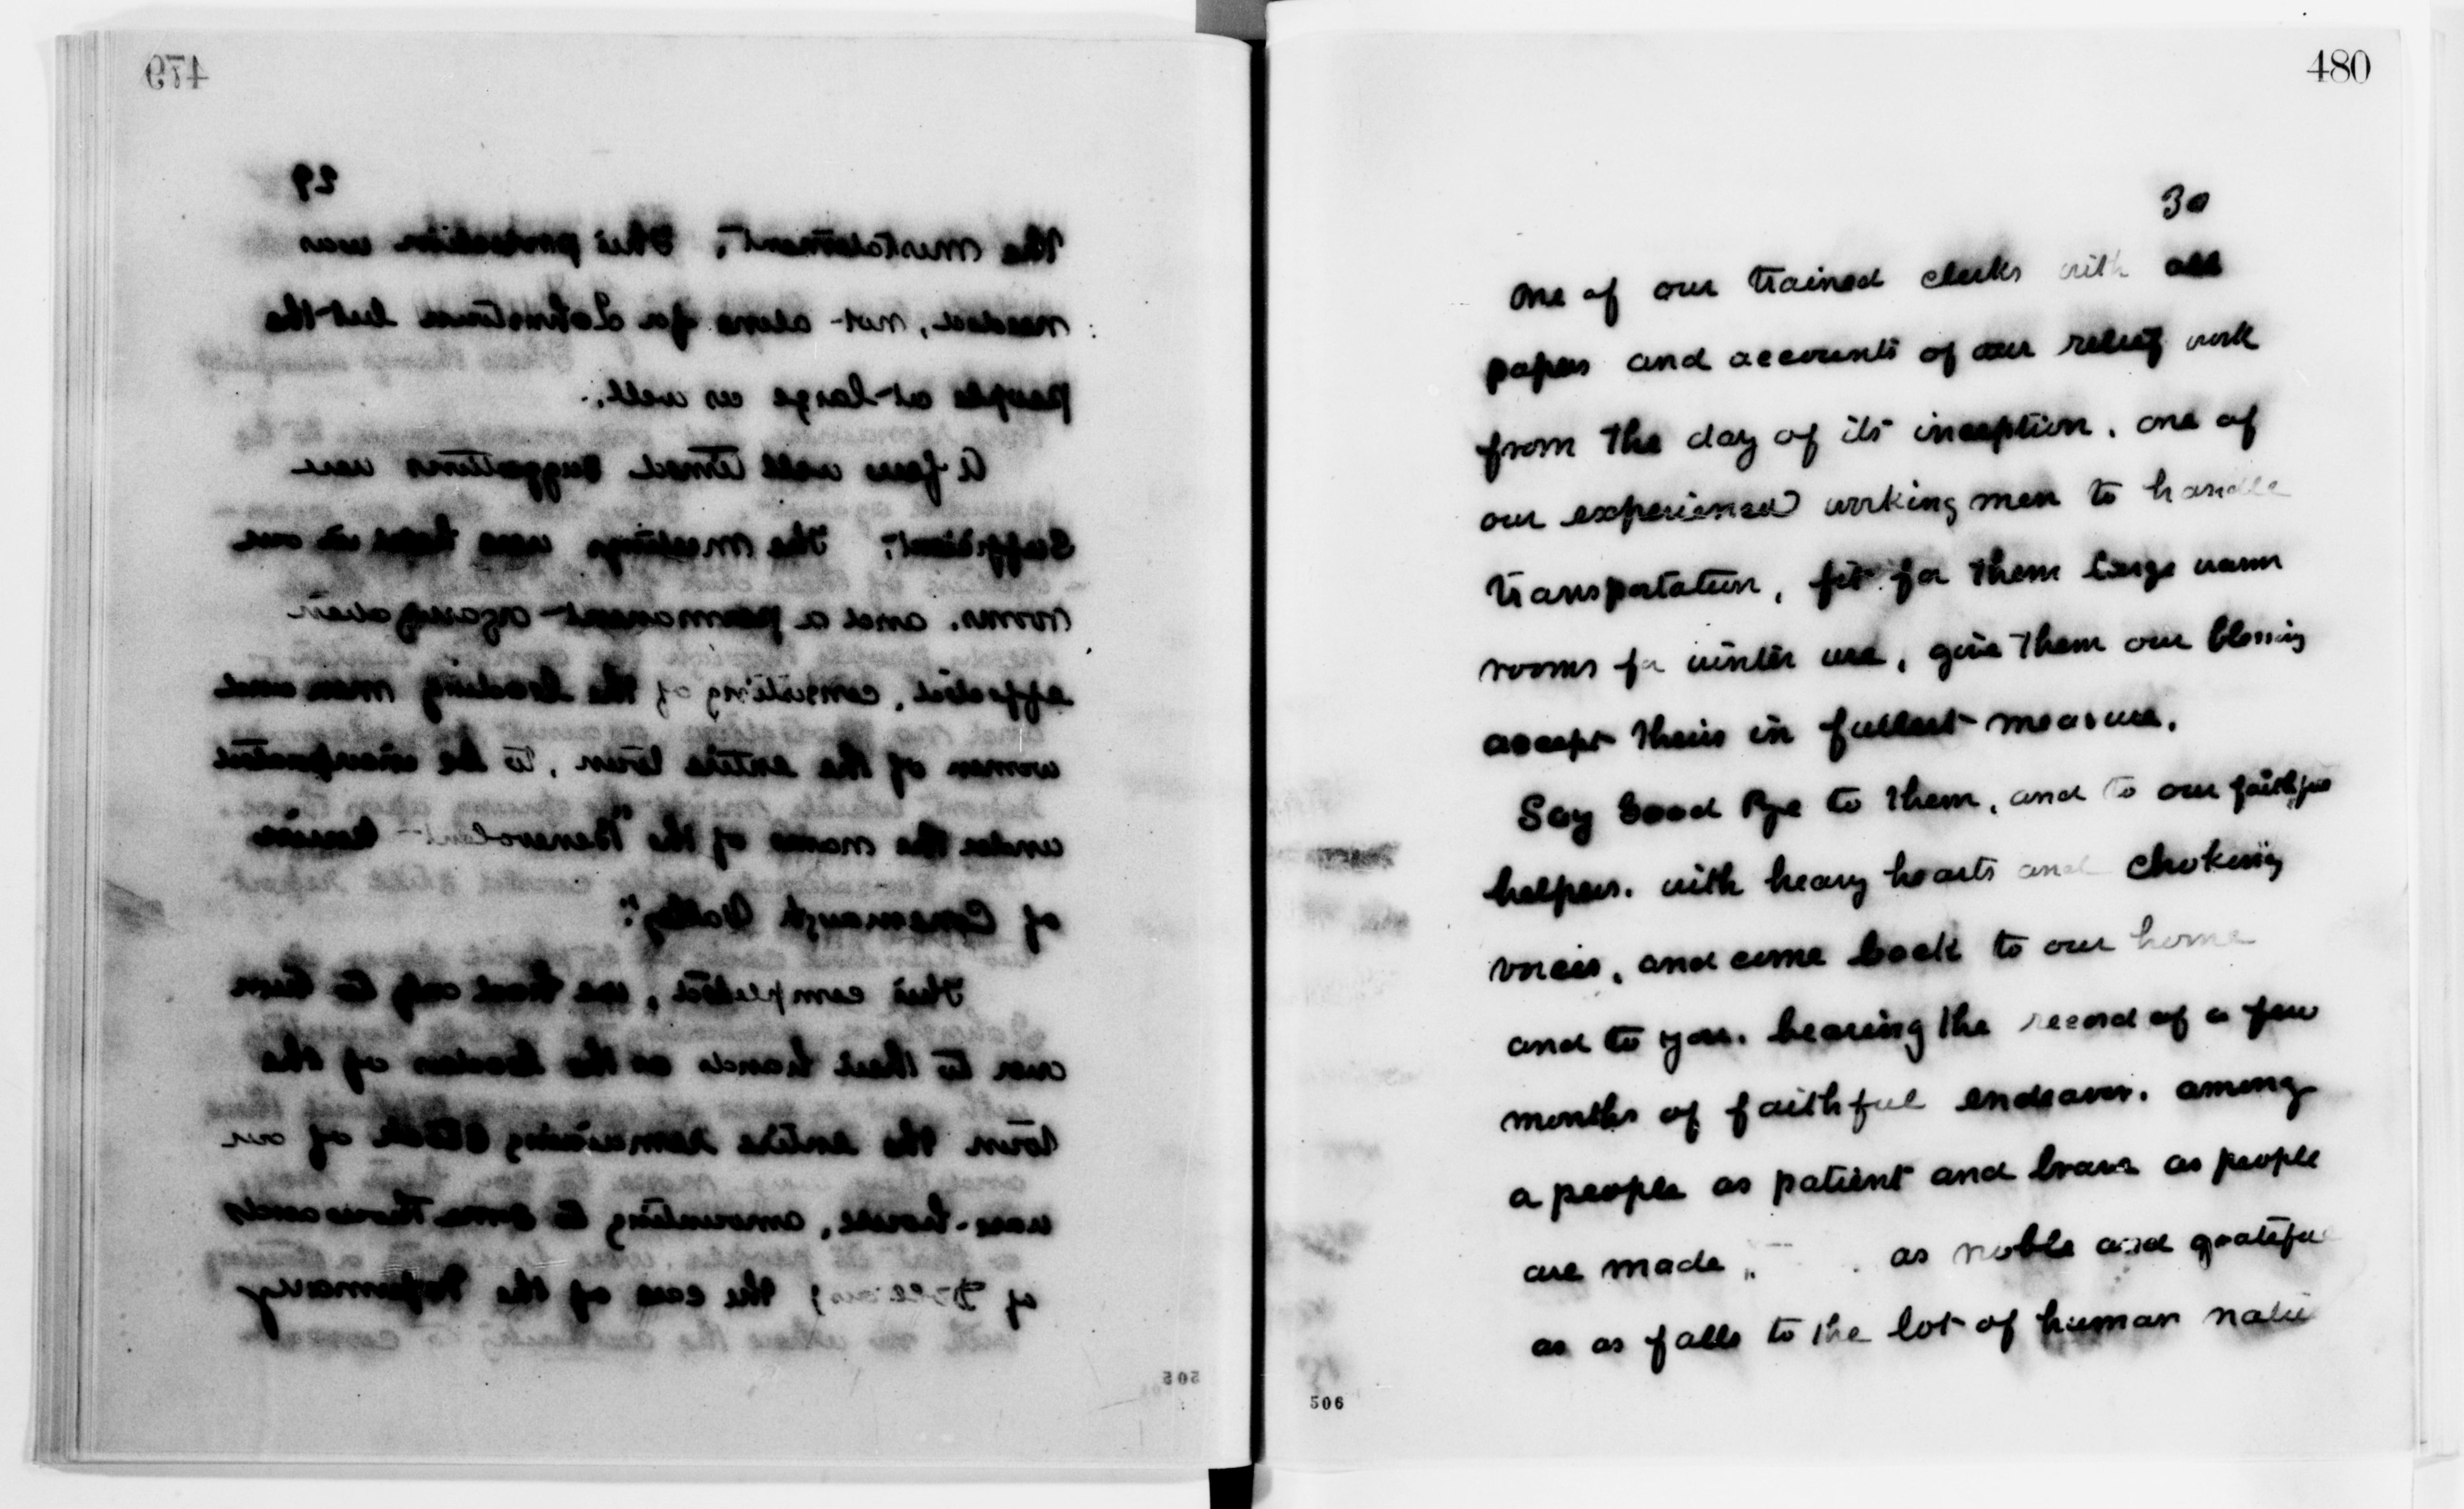 479
29
the misstatement. This protection was
needed, not alone for Johnstown but the
people at large as well.
A few well timed suggestions were
sufficient. The meetings were held in our
rooms. and a permanent organization
effected, consisting of the leading men and
women of the entire town, to be incorporated
under the name of the "Benevolent Union
of Conemaugh Valley".
This completed, we had only to turn
over to their hands as the leaders of the
town the entire remaining stock of our
ware-house, amounting to some thousands
of the care of the Infirmary
505
480
30
one of our trained clerks with all
papers and accounts of our relief work
from the day of its inception. one of
our experienced working men to handle
transportation, fit for them large warm
rooms for winter use, give them our blessing
accept theirs in fullest measure.
Say Good Bye to them, and to our faithful
helpers. with heavy hearts and choking
voices, and come back to our home
and to you. bearing the record of a few
months of faithful endeavor. among
a people as patient and brave as people
are made, as noble and grateful
as as falls to the lot of human natu
506